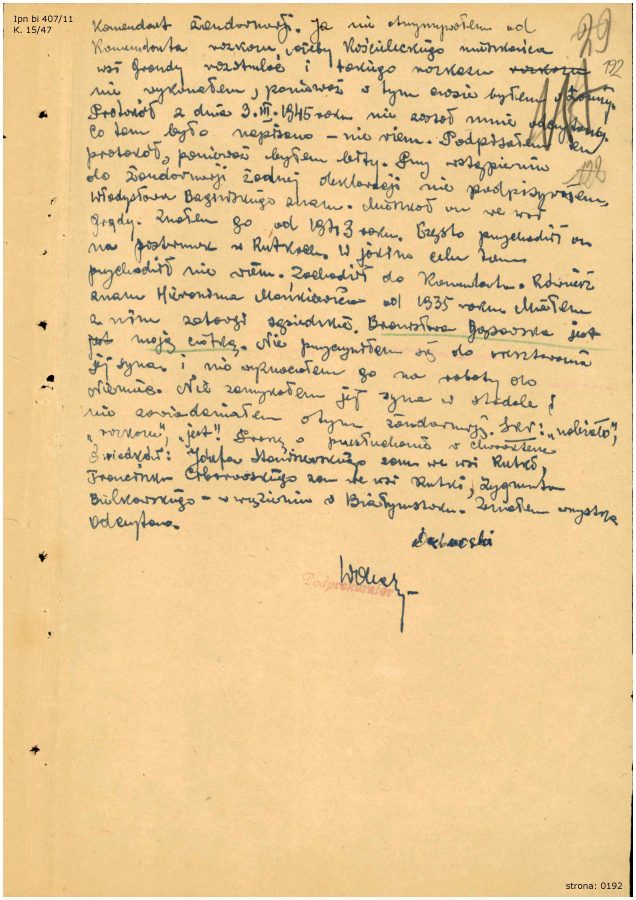 Ipn bi 407/11
K. 15/47
29
192
122
Komendant Żandarmerji. Ja nie otrzymywałem od
Komendanta rozkazu, ażeby Kościeleckiego mieszkańca
wsi Grondy rozstrzelać i takiego rozkazu rozkazu
nie wykonałem, ponieważ w tym czasie byłem
Protokół z dnia 3.III.1945 roku nie został mnie odczytany.
Co tam było napisano - nie wiem. Podpisałem ten
protokół, ponieważ byłem bity. Przy wstąpieniu
do Żandarmerji żadnej deklaracji nie podpisywałem.
Władysława znam. Mieszkał on we wsi
Grądy. Znałem go od 1943 roku. Często przychodził on
na posterunek w Rutkach. W jakim celu tam
przychodził nie wiem. Zachodził do Komendanta. Również
znam Hieronima Mońkiewicza od 1935 roku. Miałem
z nim zatargi sąsiedzkie. Bronisława Gąsowska jest
jest moją ciotką. Nie przyczyniłem się do aresztowania
jej syna i nie wyznaczałem go na roboty do
Niemiec. Nie zamykałem jej syna w stodole i
nie zawiadamiałem o tym żandarmerji. Skr: "nabiało",
"rozkazu", "jest". Proszę o przesłuchanie w charakterze
świadków: Józefa zam we wsi Rutki,
Franciszka zam we wsi Rutki, Zygmunta
Bulkowskiego - w więzieniu w Białymstoku. Zeznałem wszystko
Odczytano.
Dąbrowski
Podprokurator
strona: 0192